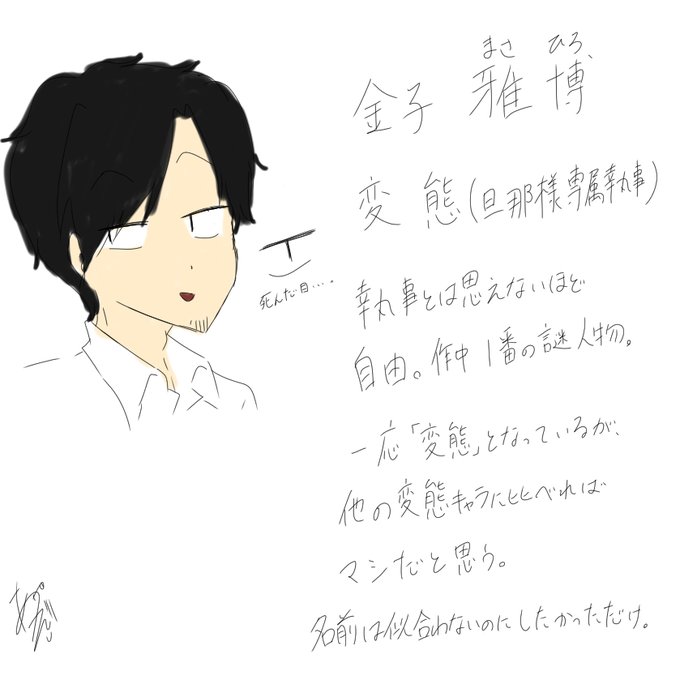 まさ ひろ
金子 雅博
変態(旦那様専属執事)
死んだ目....。
執事とは思えないほど
自由。作中1番の謎人物。
一応「変態」となっているが、
他の変態キャラに比べれば
マシだと思う。
名前は似合わないのにしたかっただけ。